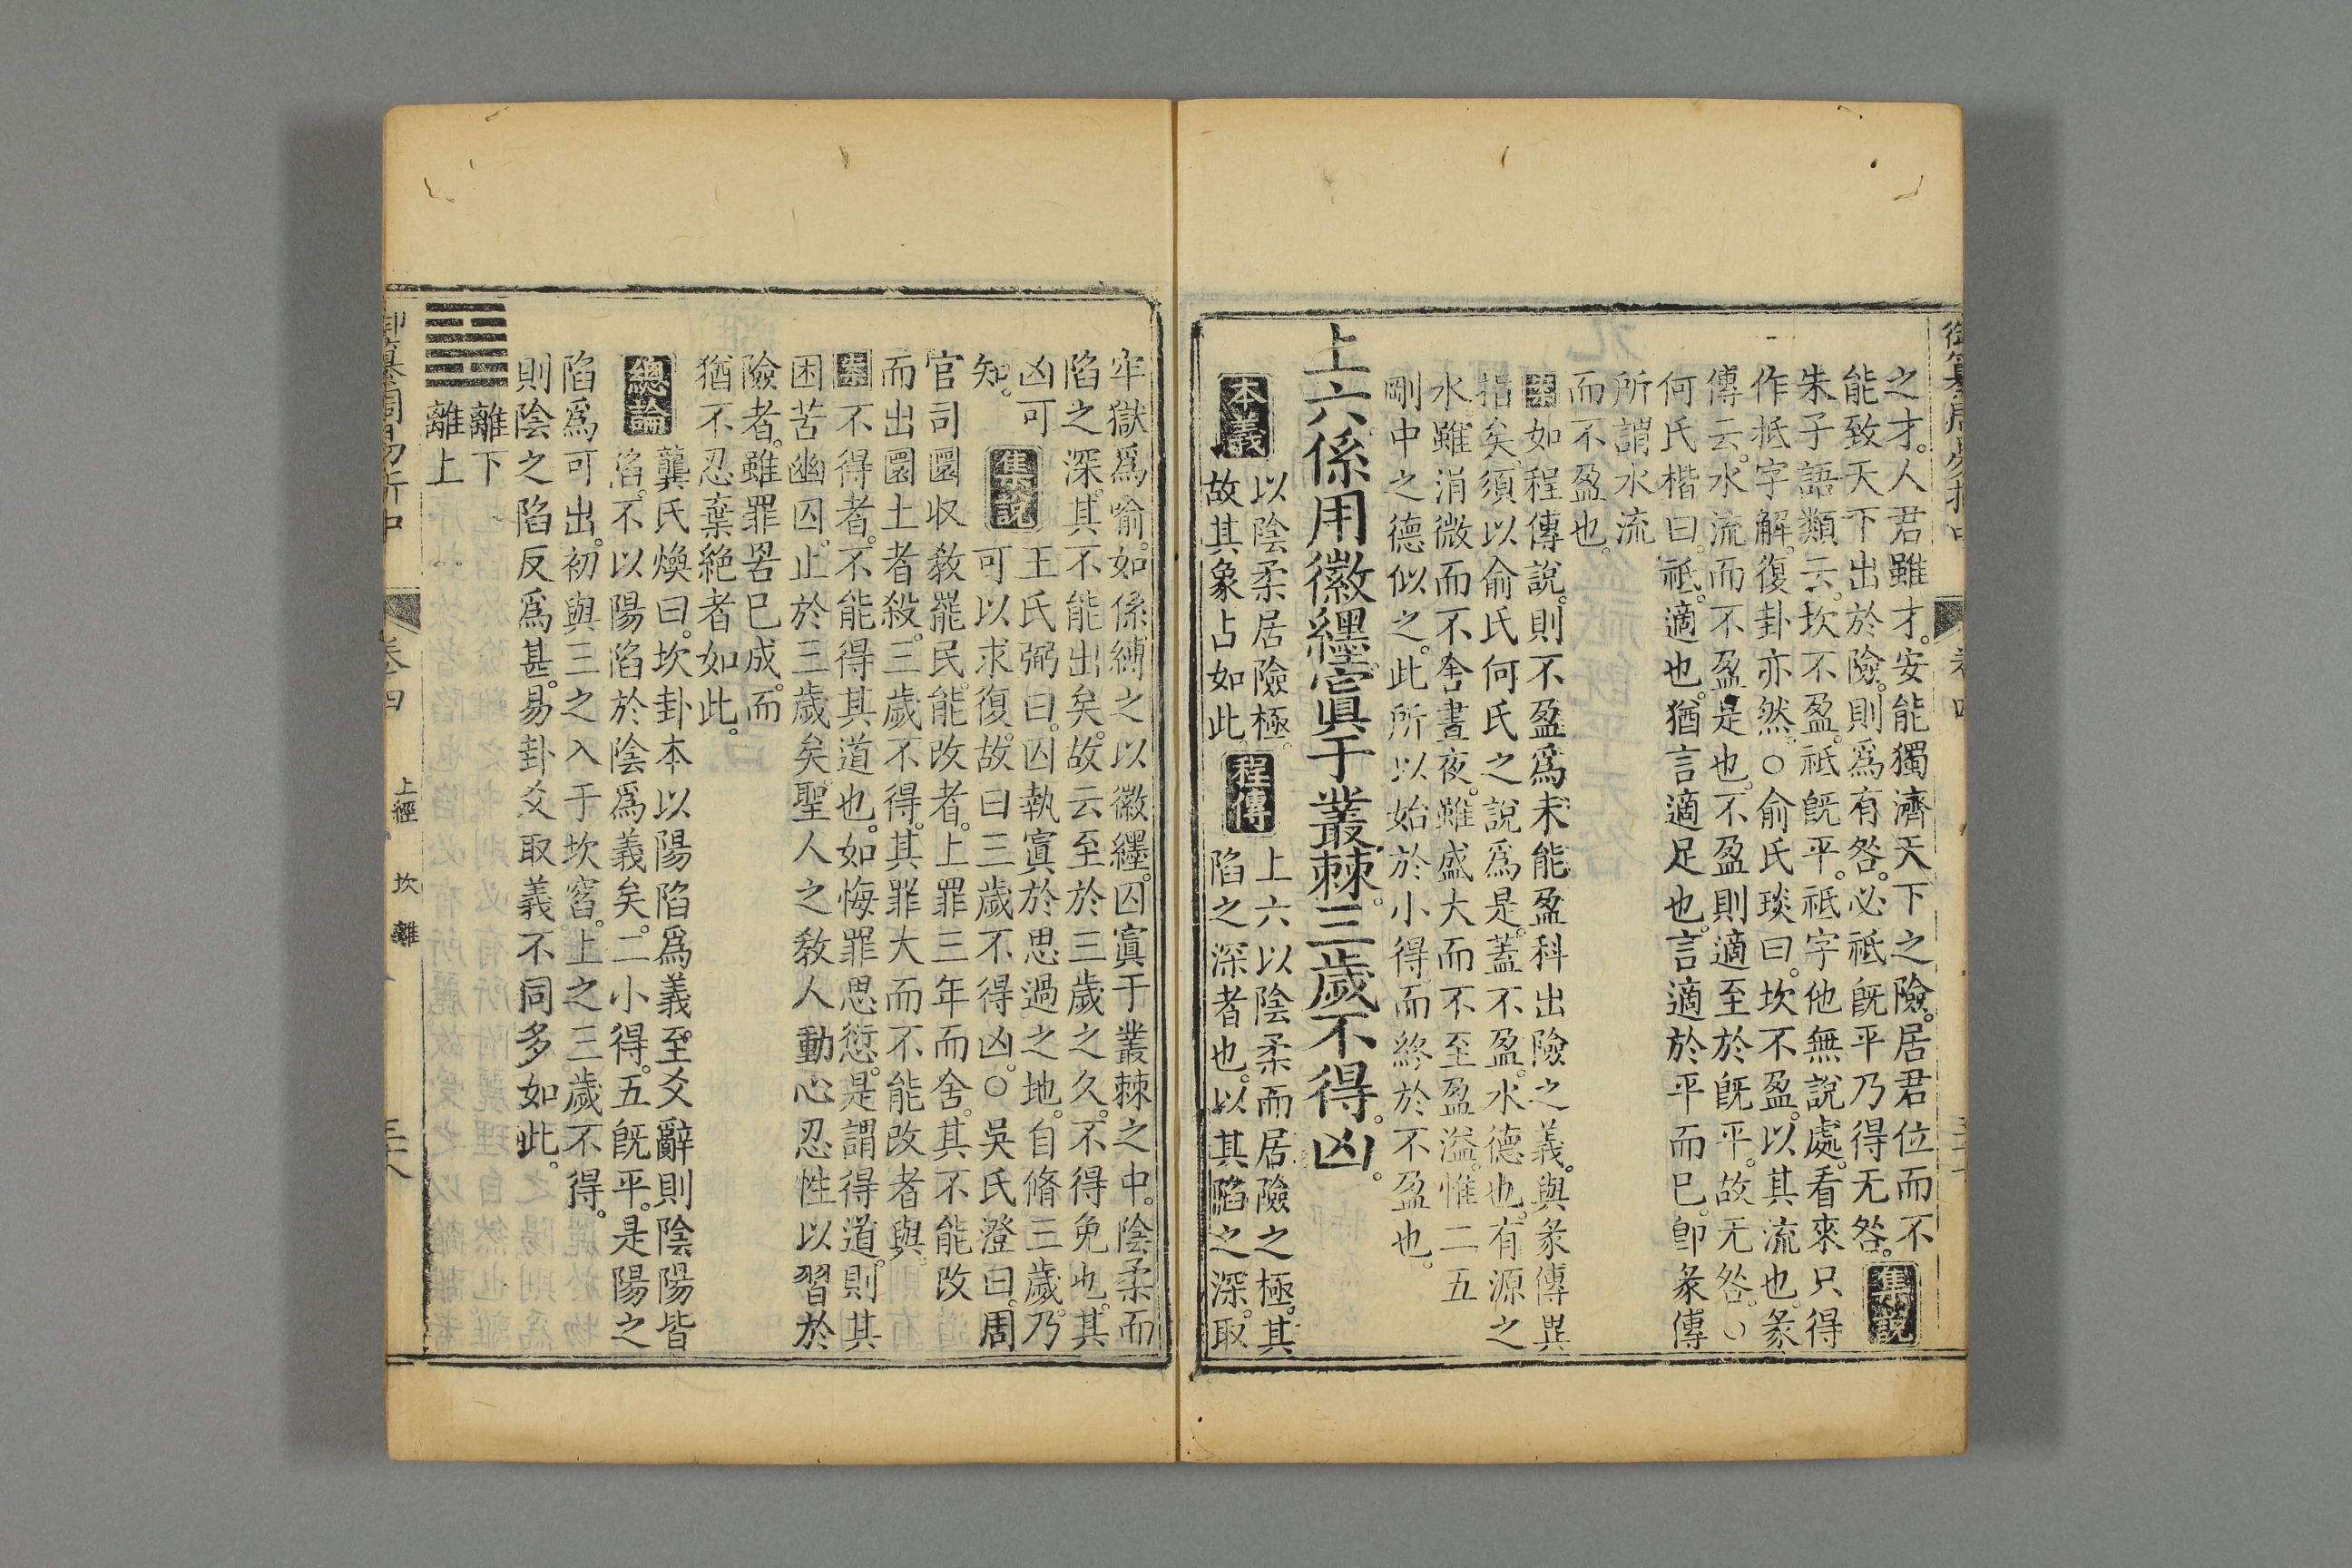 之才人君雖才安能獨濟天下之險居君位而不
能致天下出於險則爲有咎必祇旣平乃得无咎集說
朱子語類云坎不盈祇旣平祇字他無說處看來只得
作抵字解復卦亦然○俞氏琰曰坎不盈以其流也彖
傳云水流而不盈是也不盈則適至於旣平故无咎○
何氏楷曰祇適也猶言適足也言適於平而已卽彖傳
所謂水流
而不盈也
案如程傳說則不盈爲未能盈科出險之義與彖傳異
指矣須以俞氏何氏之說爲是蓋不盈水德也有源之
水雖涓微而不舍晝夜雖盛大而不至盈溢惟二五
剛中之德似之此所以始於小得而終於不盈也
上六係用徽纆寘于叢棘三歲不得凶
本義以陰柔居險極
故其象占如此程傳上六以陰柔而居險之極其
陷之深者也以其陷之深取
牢獄爲喻如係縛之以徽纆囚寘于叢棘之中陰柔而
陷之深其不能出矣故云至於三歲之久不得免也其
凶可
知集說王氏弼曰囚執寘於思過之地自脩三歲乃
可以求復故曰三歲不得凶○吳氏澄曰周
官司圜收敎罷民能改者上罪三年而舍其不能改
而出圜土者殺三歲不得其罪大而不能改者與
案不得者不能得其道也如悔罪思愆是謂得道則其
困苦幽囚止於三歲矣聖人之敎人動心忍性以習於
險者雖罪罟已成而
猶不忍棄絶者如此
總論龔氏煥曰坎卦本以陽陷爲義至爻辭則陰陽皆
陷不以陽陷於陰爲義矣二小得五旣平是陽之
陷爲可出初與三之入于坎窞上之三歲不得
則陰之陷反爲甚易卦爻取義不同多如此
離下
離上
御纂周易折中 卷四 上經 坎 離